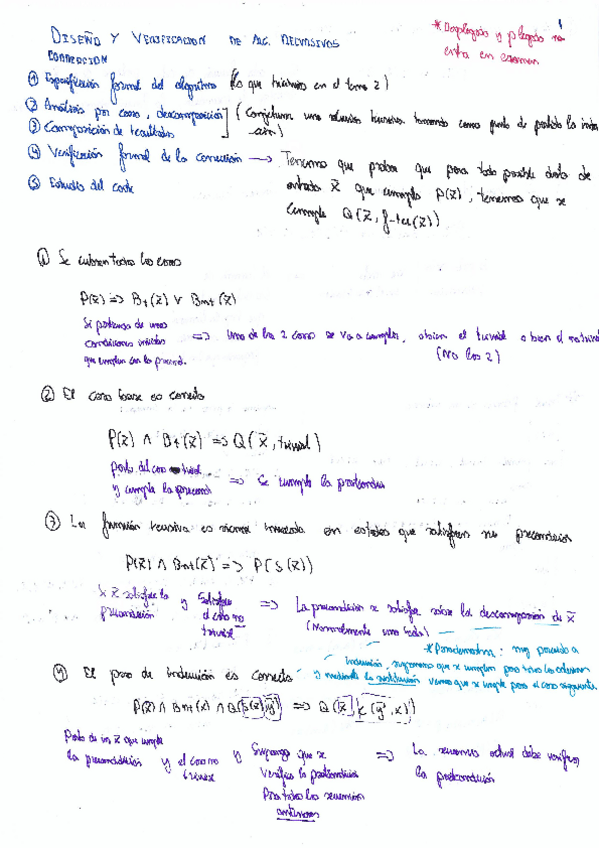 1
DISEÑO Y VERIFICACION DE ALG. RECURSIVOS
* Desplegado y plegado no
entra en examen
CORRECCION
① Especificación formal del algoritmo (lo que hicimos en el tema 2)
② Análisis por casos, descomposición
③ Composición de resultados
(Conjeturar una solución recursiva tomando como punto de partida la
④ Verificación formal de la corrección → Tenemos que probar que para todo posible dato de
⑤ Estudio del coste
entrada x̄ que cumpla P(x̄), tenemos que se
cumple Q(x̄, f-rec(x̄))
① Se cubren todos los casos
P(x̄) => Bt(x̄) ∨ Bnt(x̄)
Si partimos de unas
condiciones iniciales
que cumplen con la precond.
=> Uno de los 2 casos se va a cumplir, o bien el trivial o bien el
(No los 2)
② El caso base es correcto
P(x̄) ∧ Bt(x̄) => Q(x̄, trivial)
parto del caso trivial
y cumpla la precond
=> Se cumple la postcondición
③ La función recursiva es siempre invocada en estados que satisfacen su precondición
P(x̄) ∧ Bnt(x̄) => P(s(x̄))
Si x̄ satisface la
precondición
y
Satisface
el caso no
trivial
=> La precondición se satisface sobre la descomposición de x̄
(Normalmente una resta)
* : muy parecido a
inducción, suponemos que se cumplen para todos los anteriores
y mediante la sustitución vemos que se cumple para el caso siguiente.
④ El paso de inducción es correcto
P(x̄) ∧ Bnt(x̄) ∧ Q(s(x̄), ȳ') => Q(x̄, c(ȳ', x̄))
Parto de un x̄ que cumple
la precondición
y el caso no
trivial
y
Supongo que se
verifica la postcondición
Para todas las
anteriores
=> La actual debe verificar
la postcondición